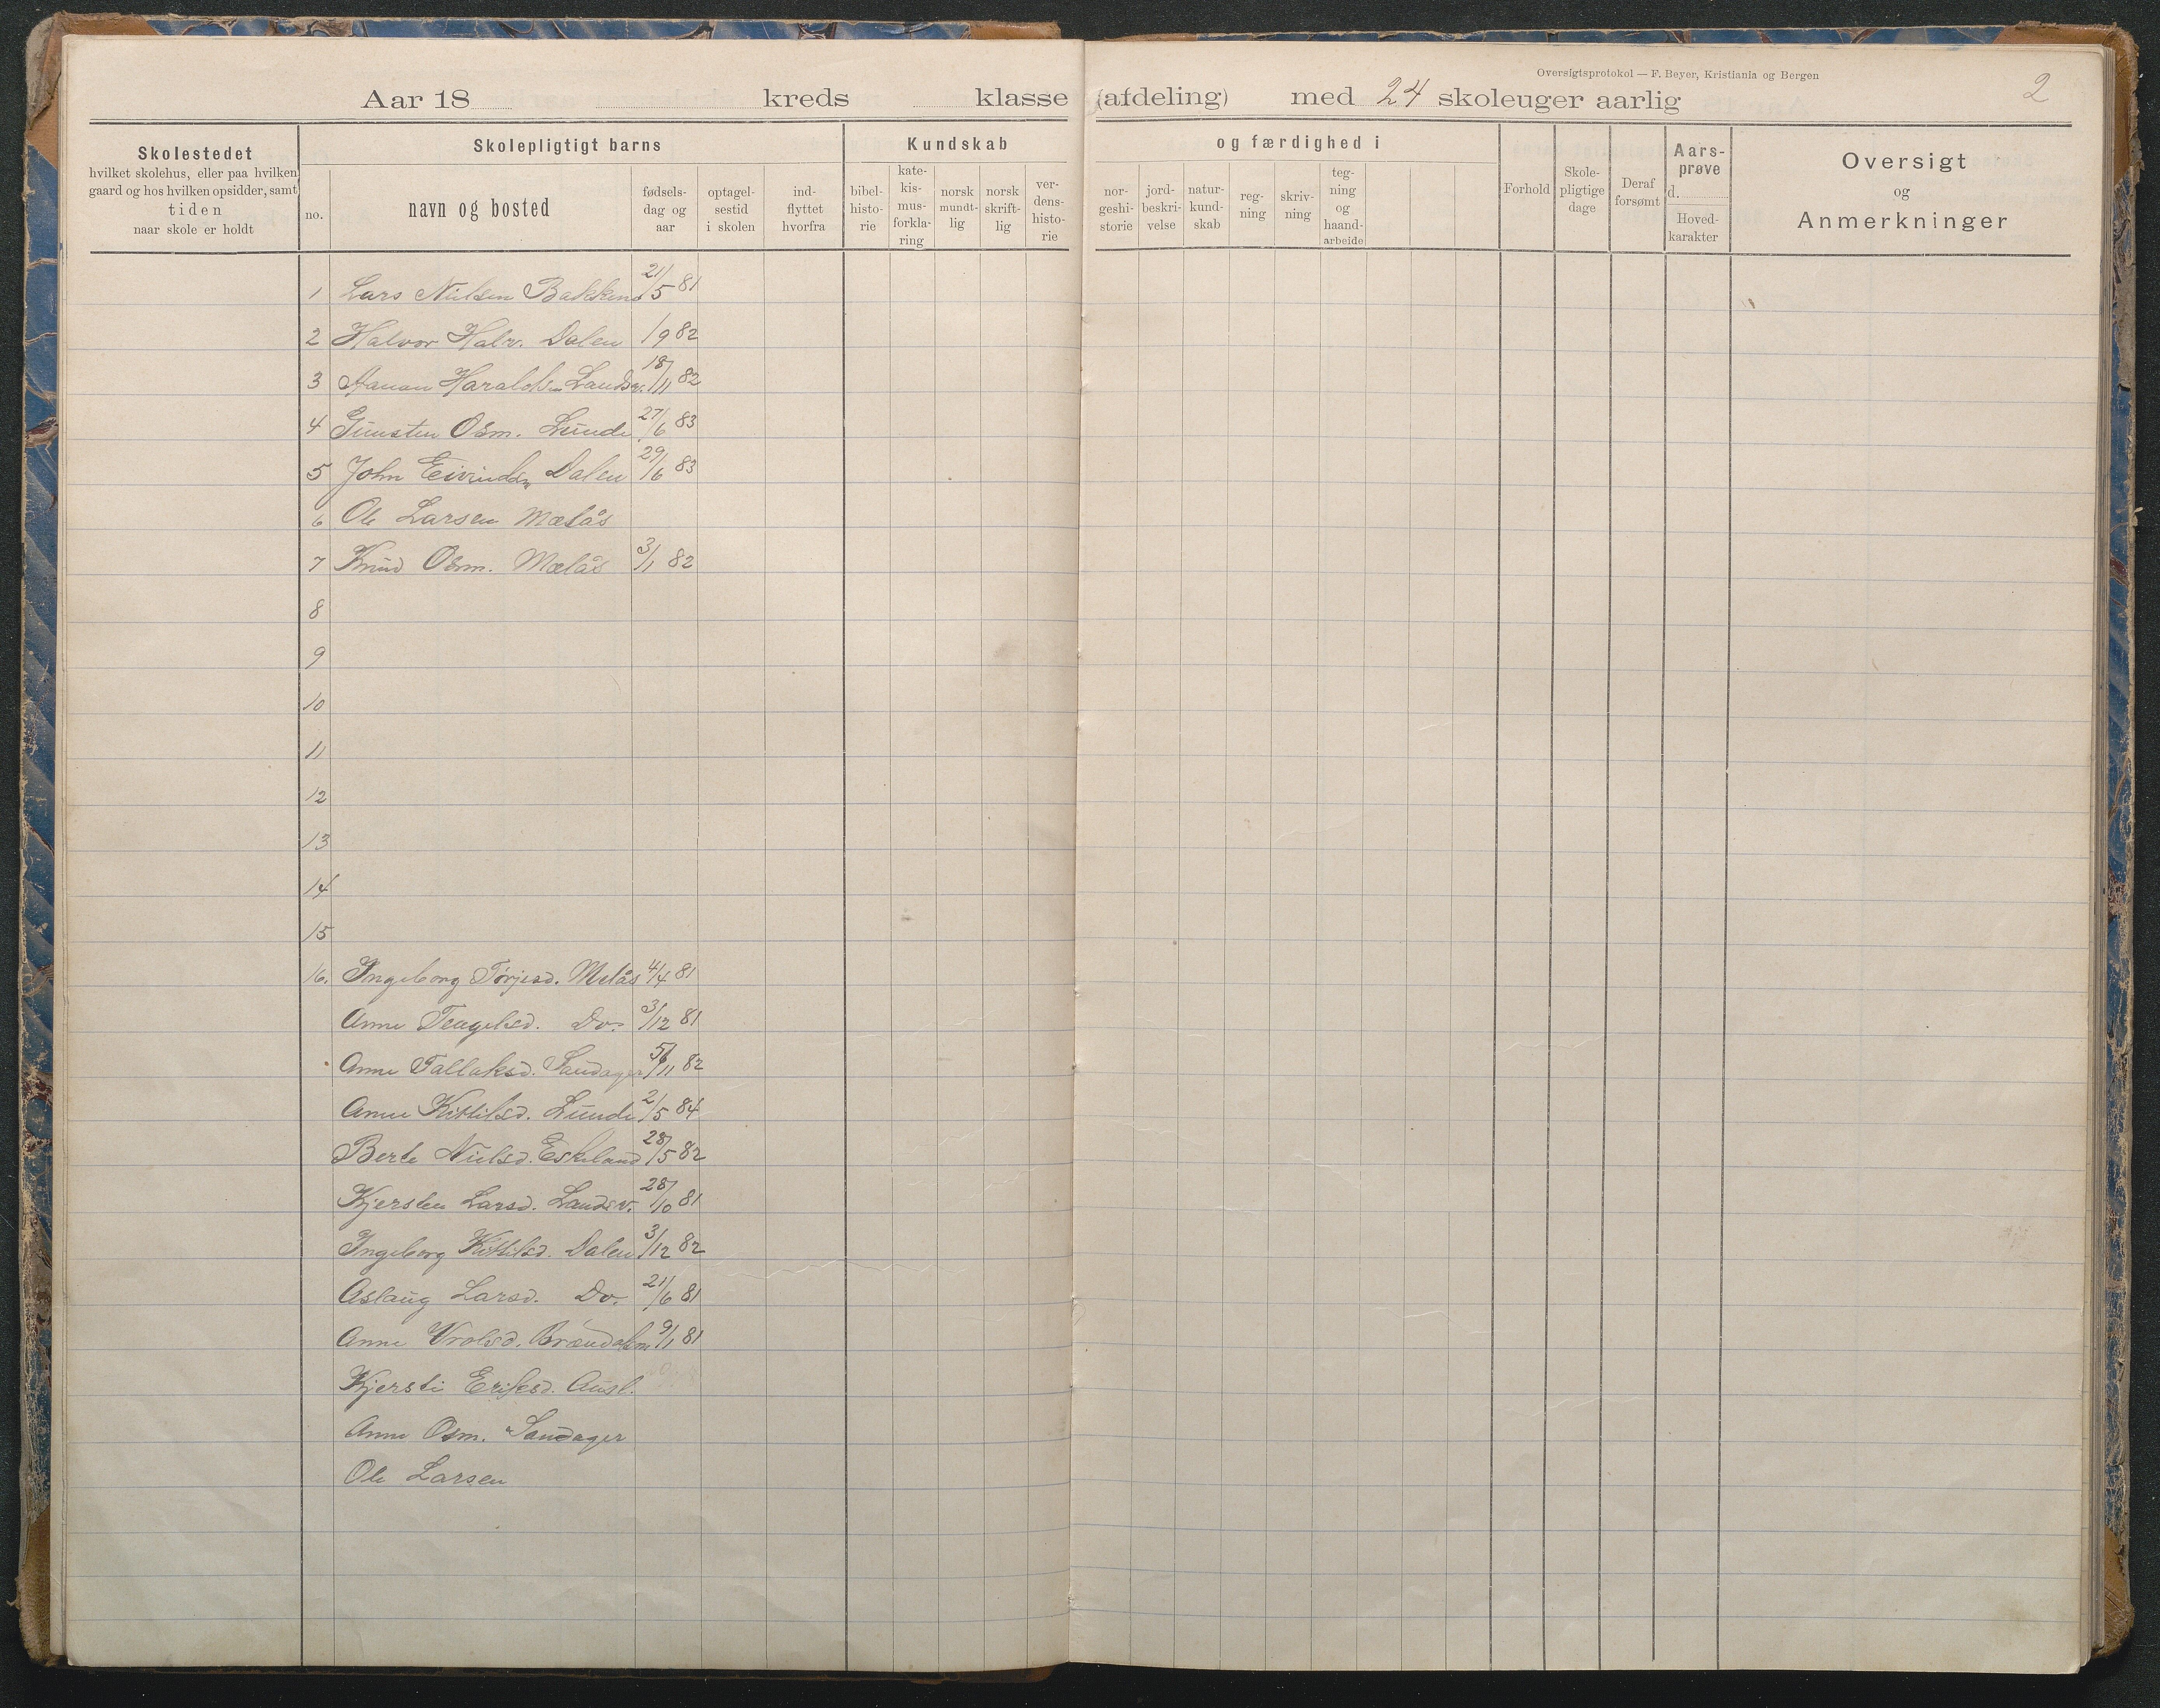 Oversigtsprotokol — F. Beyer, Kristiania og Bergen
2
Aar 18 kreds klasse (afdeling) med 24 skoleuger aarlig
Skolestedet
hvilket skolehus, eller paa hvilken
gaard og hos hvilken opsidder, samt
tiden
naar skole er holdt
Skolepligtigt barns
no.
navn og bosted
fødsels-
dag og
aar
optagel-
sestid
i skolen
ind-
flyttet
hvorfra
Kundskab
bibel-
histo-
rie
kate-
kis-
mus-
forkla-
ring
norsk
mundt-
lig
norsk
skrift-
lig
ver-
dens-
histo-
rie
og færdighed i
nor-
geshi-
storie
jord-
beskri-
velse
natur-
kund-
skab
reg-
ning
skriv-
ning
teg-
ning
og
haand-
arbeide
Forhold
Skole-
pligtige
dage
Deraf
forsømt
Aars-
prøve
d.
Hoved-
karakter
Oversigt
og
Anmerkninger
1 Lars Nielsen Bakken 21/5 81
2 Halvor Halv. Dalen /9 82
3 Aanon Haraldsen Landsv. 18/11 82
4 Gunsten Osm. Lunde 27/6 83
5 John Eivindsn Dalen 29/6 83
6 Ole Larsen Mælås
7 Knud Osm. Mælås 3/1 82
8
9
10
11
12
13
14
15
16. Ingeborg Tørjesd. Melås 4/4 81
Anne Teugelsd. Do. 3/12 81
Anne Tallaksd. Sandager /11 82
Anne Kittilsd. Lunde 2/5 84
Berte Nielsd. Eskeland 28/5 82
Kjersten Larsd. Landsv. 28/10 81
Ingeborg Kittilsd. Dalen 3/12 82
Aslaug Larsd. Do. 21/6 81
Anne Vrolsd. 9/1 81
Kjersti Eriksd. Ausl.
Anne Osm. Sandager
Ole Larsen